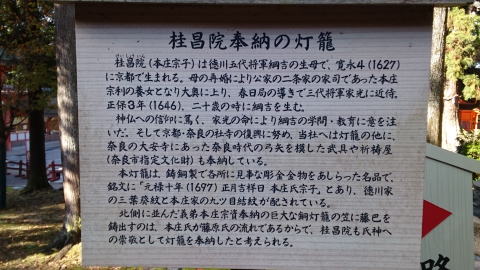 桂昌院奉納の灯籠
桂昌院(本庄宗子)は徳川五代将軍綱吉の生母で、寛永4(1627)
に京都で生まれる。母の再婚により公家の二条家の家司であった本庄
宗利の養女となり大奥に上り、春日局の導きで三代将軍家光に近侍。
正保3年(1646)、二十歳の時に綱吉を生む。
神仏への信仰に篤く、家光の命により綱吉の学問・教育に意を注
いだ。そして京都・奈良の社寺の復興に努め、当社へは灯籠の他に、
奈良の大安寺にあった奈良時代の弓矢を模した武具や祈祷屋
(奈良市指定文化財)も奉納している。
本灯籠は、鋳銅製で各所に見事な彫金金物をあしらった名品で、
銘文に「元禄十年(1697)正月吉祥日 本庄氏宗子」とあり、徳川家
の三葉葵紋と本庄家の九ツ目結紋が配されている。
北側に並んだ義弟本庄宗資奉納の巨大な銅灯籠の笠に藤巴を
鋳出すのは、本庄氏が藤原氏の流れであるからで、桂昌院も氏神へ
の崇敬として灯籠を奉納したと考えられる。
路